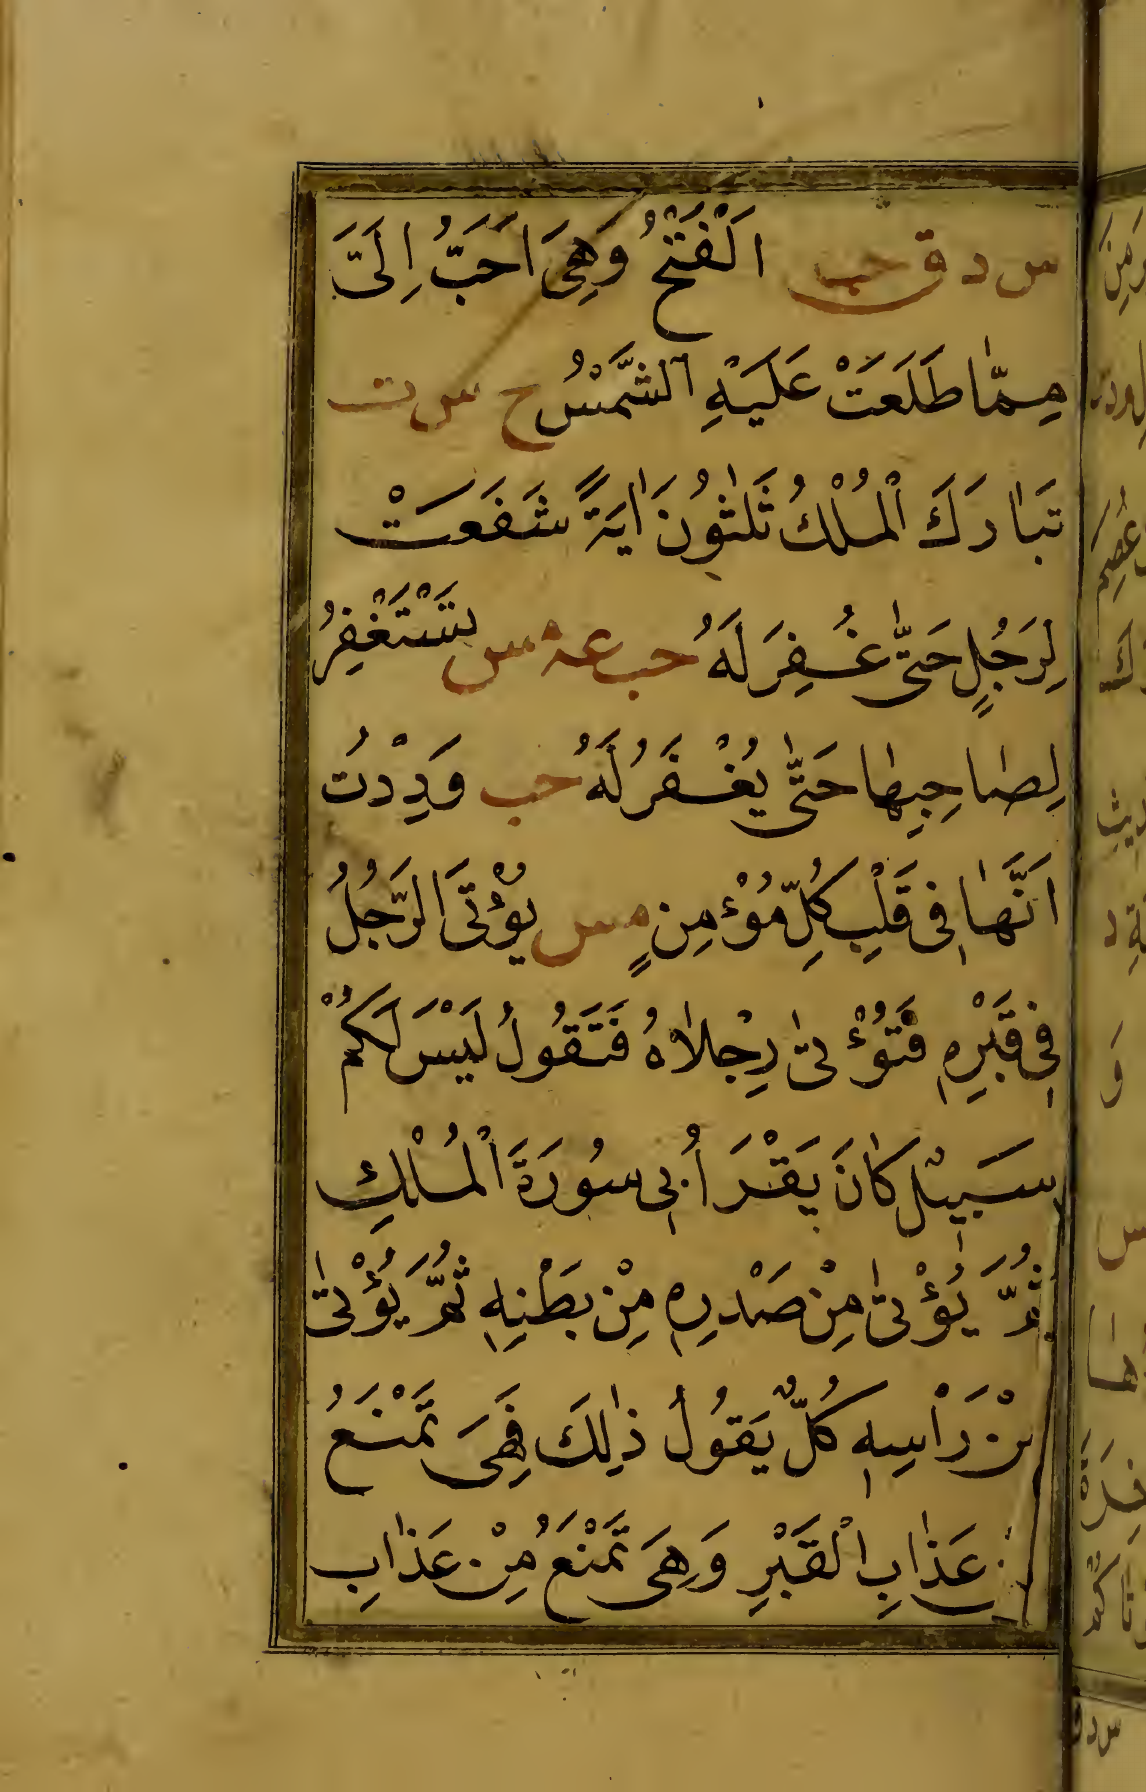 س د ق حب اَلْفَتْحُ وَهِیَ اَحَبُّ اِلَیَّ
مِمَّا طَلَعَتْ عَلَيْهِ الشَّمْسُ خ س ت
تَبَارَكَ الْمُلْكُ ثَلٰثُونَ اٰيَةً شَفَعَتْ
لِرَجُلٍ حَتّٰى غُفِرَ لَهُ حب عه مس تَسْتَغْفِرُ
لِصَاحِبِهَا حَتّٰى يُغْفَرُ لَهُ حب وَدِدْتُ
اَنَّهَا فِى قَلْبِ كُلِّ مُؤْمِنٍ مس يُؤْتَى الرَّجُلُ
فِى قَبْرِهٖ فَتُؤْتٰى رِجْلَاهُ فَتَقُولُ لَيْسَ لَكُمْ
سَبِيْلٌ كَانَ يَقْرَأُ بِى سُورَةَ الْمُلْكِ
ثُمَّ يُؤْتٰى مِنْ صَدْرِهٖ مِنْ بَطْنِهٖ ثُمَّ يُؤْتٰى
مِنْ رَاْسِهٖ كُلٌّ يَقُولُ ذٰلِكَ فَهِىَ تَمْنَعُ
عَذَابِ الْقَبْرِ وَهِىَ تَمْنَعُ مِنْ عَذَابِ